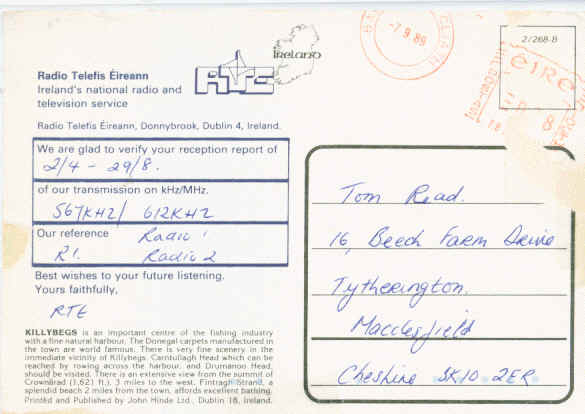 Radio Telefís Éireann
Ireland's national radio and
television service
RTE
Ireland
Radio Telefís Éireann, Donnybrook, Dublin 4, Ireland.
We are glad to verify your reception report of
2/4 - 29/8.
of our transmission on kHz/MHz.
567KHZ/ 612KHZ
Our reference Radio 1
R1. Radio 2
Best wishes to your future listening.
Yours faithfully,
RTE
KILLYBEGS is an important centre of the fishing industry
with a fine natural harbour. The Donegal carpets manufactured in
the town are world famous. There is very fine scenery in the
immediate vicinity of Killybegs. Carntullagh Head which can be
reached by rowing across the harbour, and Drumanoo Head,
should be visited. There is an extensive view from the summit of
Crownarad (1,621 ft.), 3 miles to the west. Fintragh Strand, a
splendid beach 2 miles from the town, affords excellent bathing.
Printed and Published by John Hinde Ltd., Dublin 18, Ireland.
-7.9.89
2/268-B
ÉIRE
Tom Read.
16, Beech Farm Drive
Tytherington.
Macclesfield
Cheshire SK10 2ER